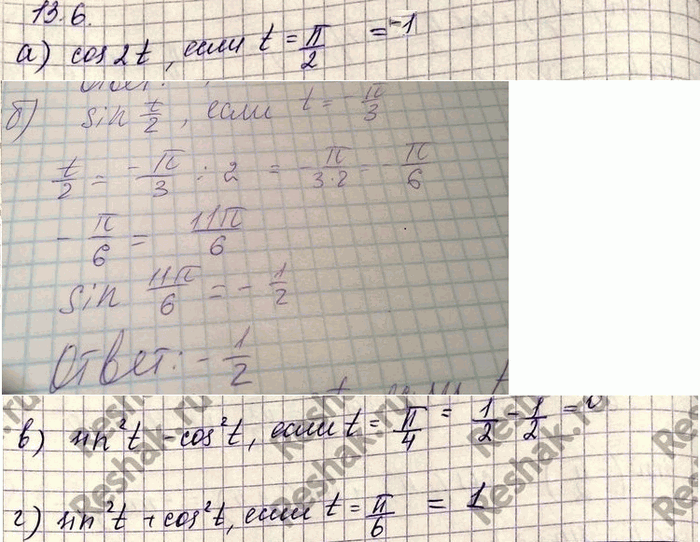 13.6.
а) cos 2t, если t = π/2 = -1
Ответ:
б) sin t/2, если t = - π/3
t/2 = - π/3 : 2 = - π/(3·2) = - π/6
- π/6 = 11π/6
sin 11π/6 = - 1/2
Ответ: - 1/2
в) sin²t - cos²t, если t = π/4 = 1/2 - 1/2 = 0
г) sin²t + cos²t, если t = π/6 = 1
Reshak.ru